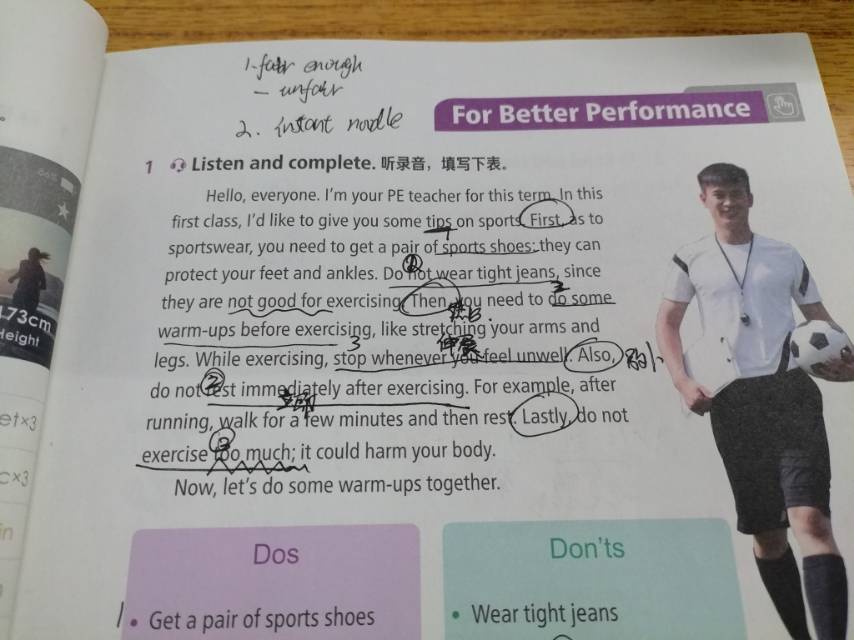 1. fair enough
- unfair
2. instant noodle
For Better Performance
1 Listen and complete. 听录音，填写下表。
Hello, everyone. I'm your PE teacher for this term. In this
first class, I'd like to give you some tips on sports. First, as to
sportswear, you need to get a pair of sports shoes: they can
1
protect your feet and ankles. Do not wear tight jeans, since
they are not good for exercising. Then, you need to do some
2
warm-ups before exercising, like stretching your arms and
3
伸展
legs. While exercising, stop whenever you feel unwell. Also,
do not rest immediately after exercising. For example, after
立即
running, walk for a few minutes and then rest. Lastly, do not
exercise too much; it could harm your body.
Now, let's do some warm-ups together.
66%
173cm
Height
et×3
c×3
in
Dos
Don'ts
1 • Get a pair of sports shoes
• Wear tight jeans